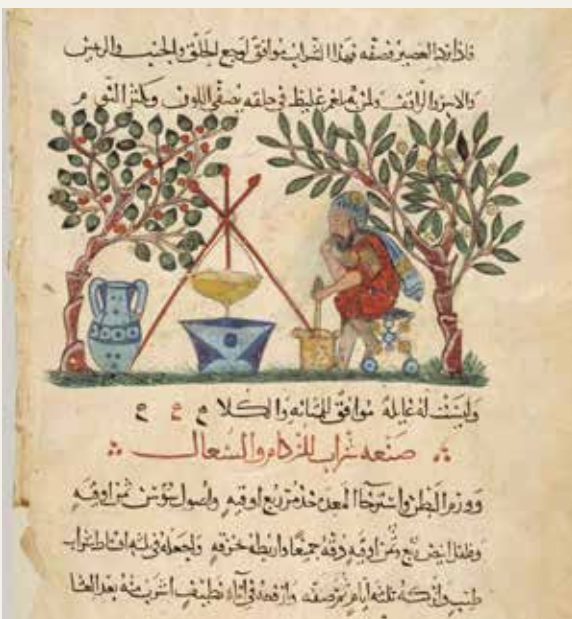 فاذا برد العصير وصفه فهذا الشراب موافق لوجع الحلق والجنب والرئتين
ولمن به لحم غليظ في حلقه يصفى اللون ويكثر النوم
وليست له غايلة موافق للمثانة والكلا
صنعة شراب للزكام والسعال
وورم البطن واسترخا المعدة خذ مر ربع اوقيه واصول سوسن ثمن اوقيه
وفلفل ابيض ربع وثمن اوقيه دقه جميعا واربطه خرقه واجعله في ثلثه اقساط شراب
طيب واتركه ثلثه ايام ثم صفه وارفعه في اناء نظيف اشرب منه بعد العشا